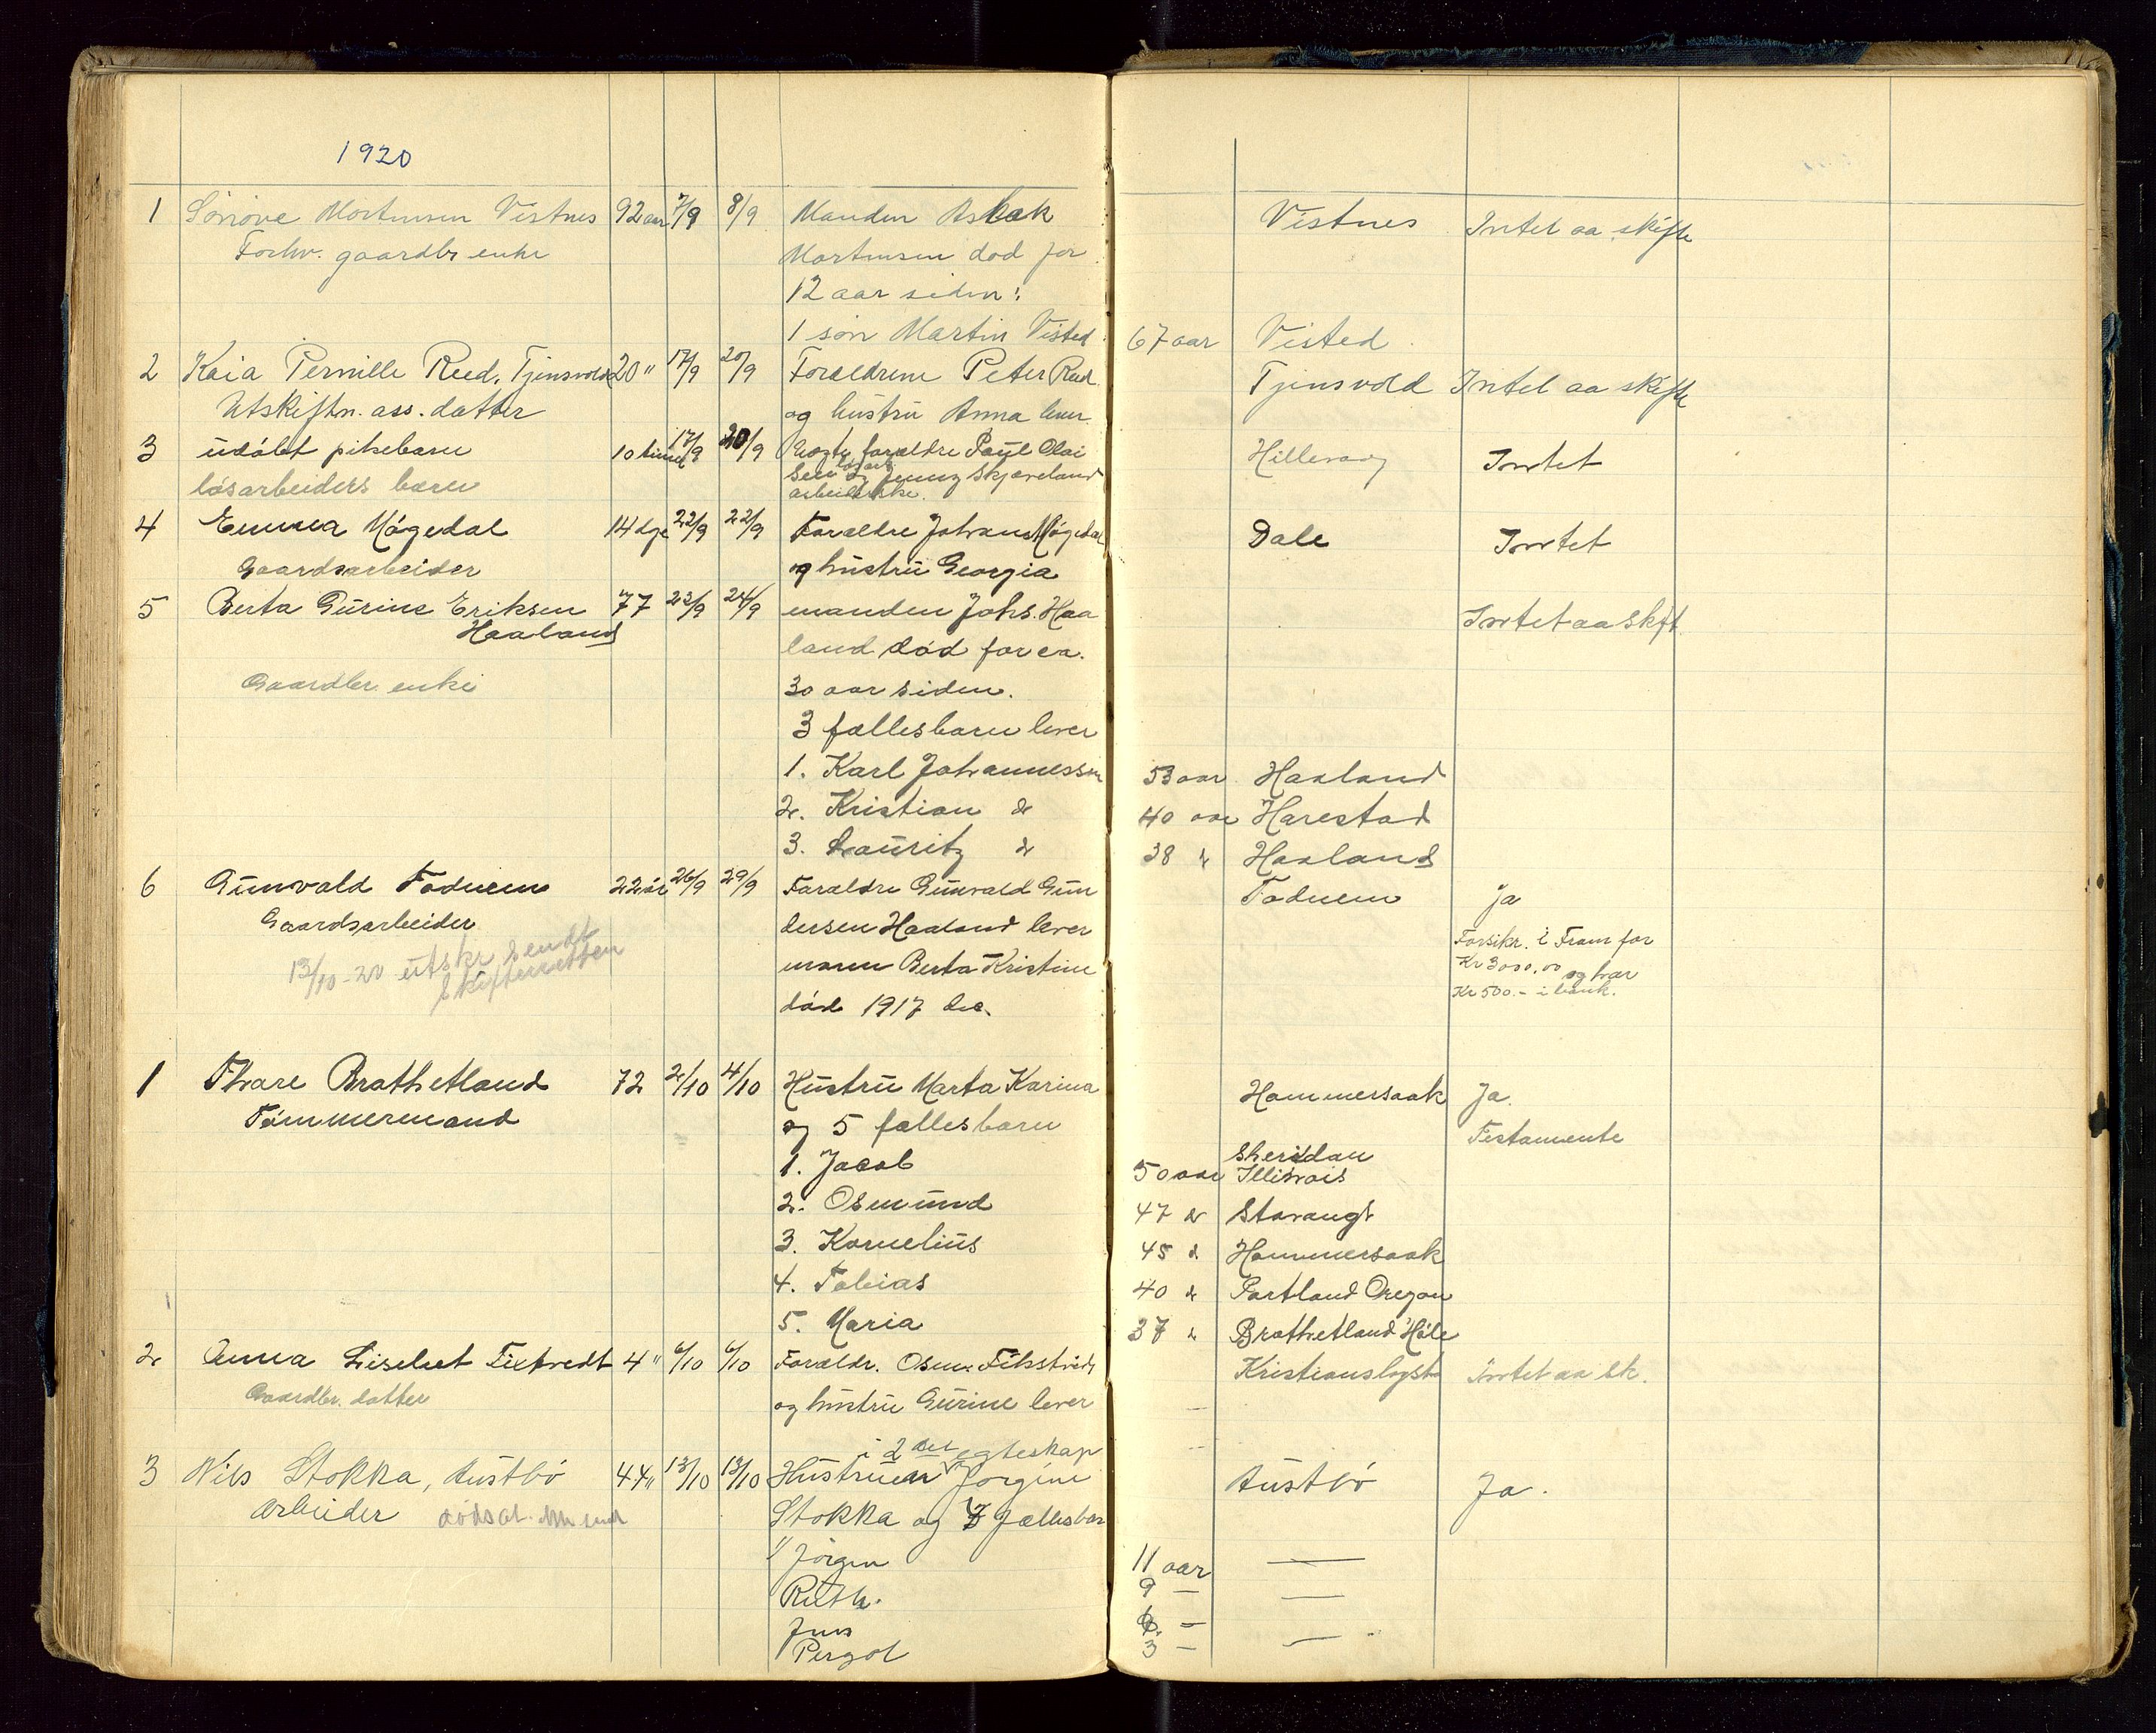 1920
1 Sønnøve Mortensen Vistnes 92 aar 7/9 8/9 Manden Aslak Vistnes Intet aa skifte
Forhv. gaardbr enke Mortensen død for
12 aar siden:
1 søn Martin Visted 67 aar Visted
2 Kaia Pernille Reed, Tjensvold 20 " 17/9 20/9 Forældrene Peter Reed Tjensvold Intet aa skifte
Utskiftn. ass. datter og hustru Anna lever
3 udøbt pikebarn 10 timer 17/9 20/9 forældre Paul Olai Hillevaag Intet
løsarbeiders barn og Jenny Skjæveland
4 Emma Møgedal 14 dge 22/9 22/9 Foræeldre Johans Møgedal Dale Intet
Gaardsarbeider og hustru Georgia
5 Berta Gurine Eriksen 77 22/9 24/9 manden Johs. Haa Intet aa skift.
Haaland land død for ca.
Gaardbr. enke 30 aar siden.
3 fællesbarn lever
1. Karl Johannessen 53 aar Haaland
2. Kristian do 40 aar Harestad
3. Lauritz do 38 do Haaland
6 Gunvald Foduem 22 år 26/9 29/9 Foræeldre Gunvald Gun Foduem Ja
Gaardsarbeider dersen Haaland lever Forsikr. i Fram for
13/10-20 utskr sendt moren Berta Kristine Kr 3000,00 og har
Skifteretten død 1917 Kr 500.- i bank.
1 Thore Brathetland 72 2/10 4/10 Hustru Marta Karina Hommersaak Ja.
Tømmermand og 5 fællesbarn Testamente
1. Jacob 50 aar Sheridan Illinois
2. Osmund 47 do Stavangr
3. Kornelius 45 do Hommersaak
4. Tobias 40 do Portland Oregon
5. Maria 37 do Brathetland Høle
2 Anna Liselut Fixtvedt 4 " 6/10 6/10 Forældr. Osm. Fikstvedt Kristianslyst Intet aa sk.
Gaardbr. datter og hustru Gurine lever
i 2det egteskap
3 Nils Stokka, Austbø 44 " 13/10 13/10 Hustruen Jorgine Austbø Ja.
Arbeider Stokka og 7 fællesbar
1/ Jørgen 11 aar —
Ruth. 9 — —
Jens 6. —
Pergot 3 — —